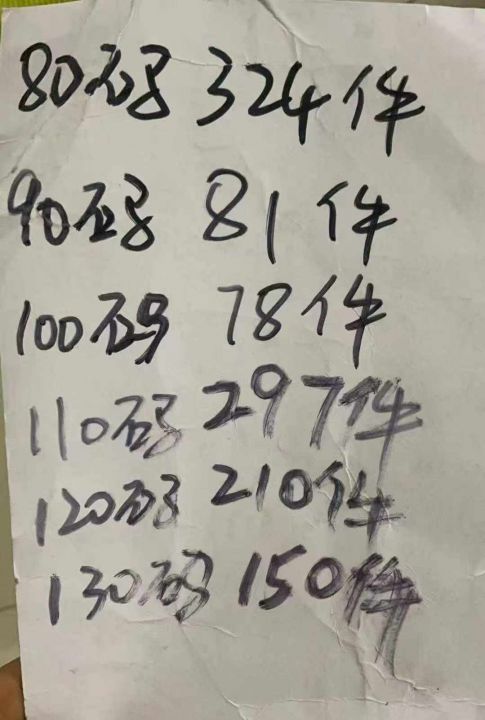 80码 324件
90码 81件
100码 78件
110码 297件
120码 210件
130码 150件